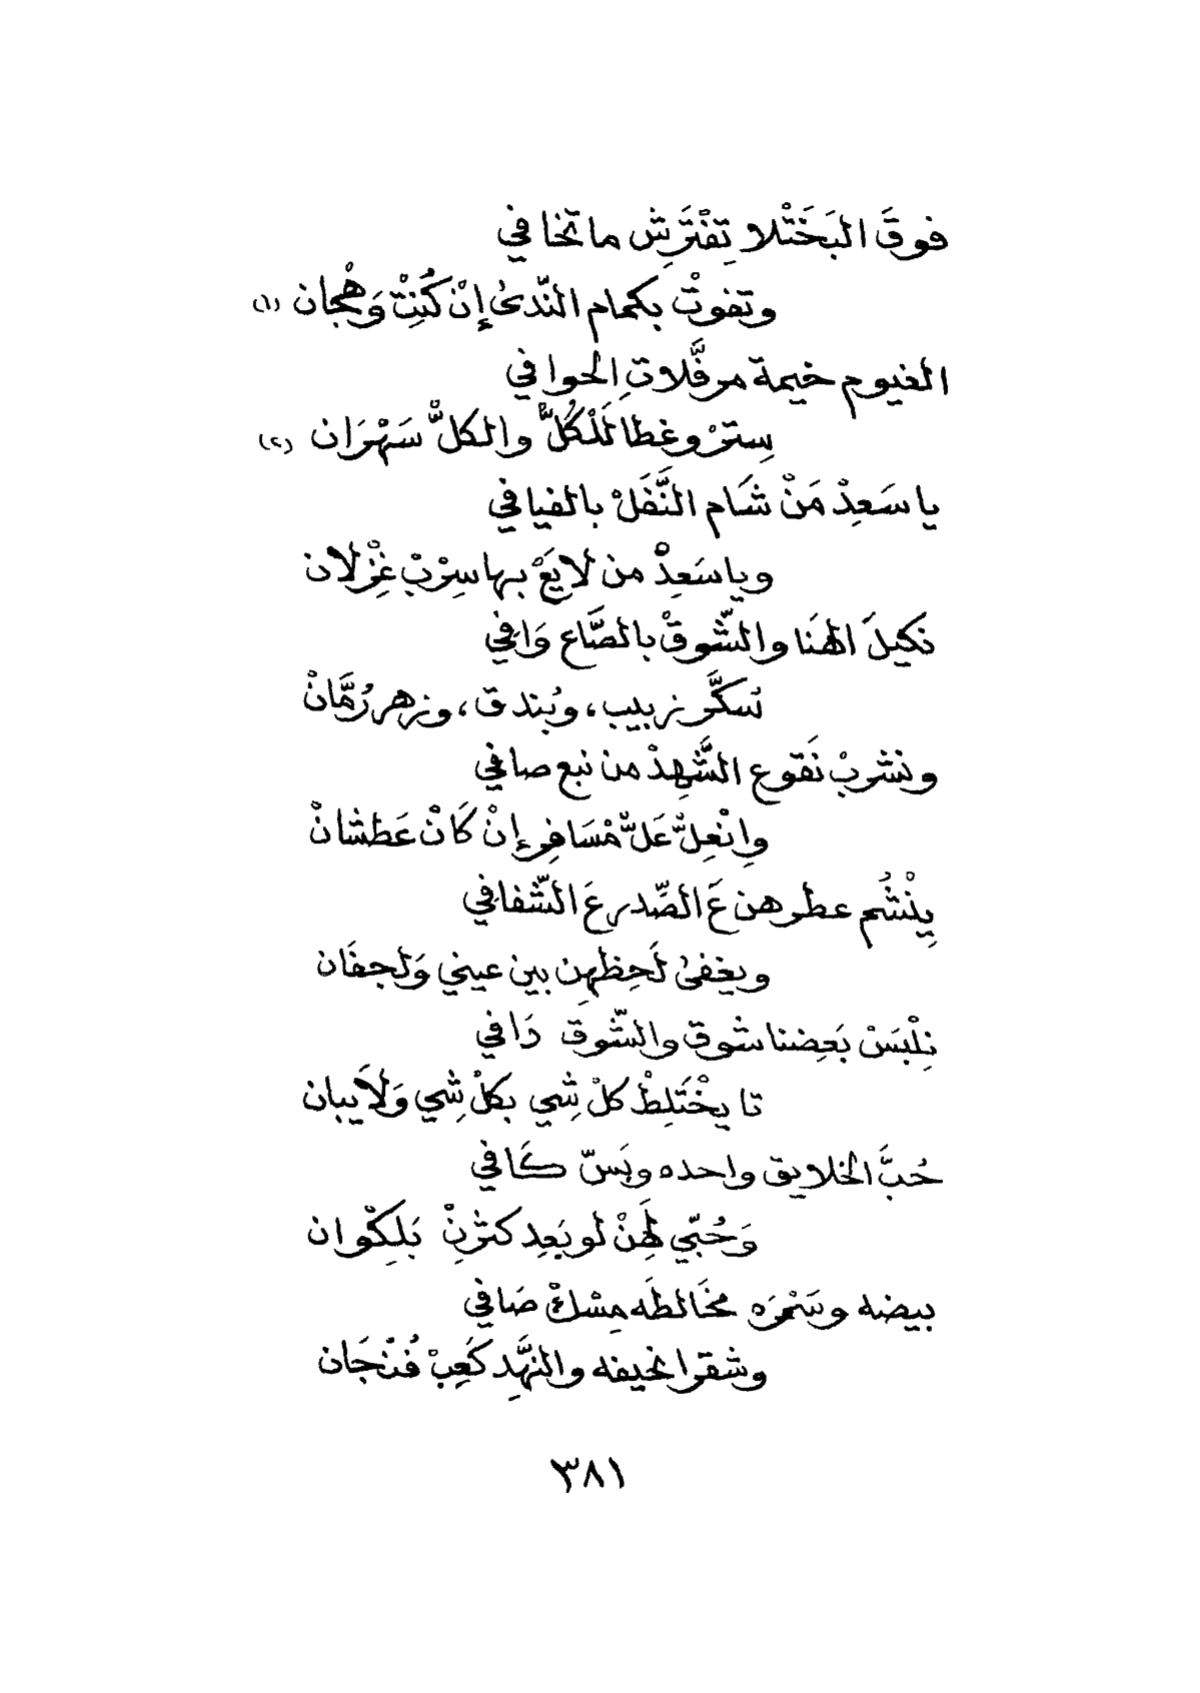 فوقَ البَخَتْلا تِفْتَرِش ما تخافي
وتفوتْ بكمام النّدىٰ إِنْ كُنِتْ وَهْجان (١)
الغيوم خيمة مرفَّلاتِ الحوافي
سِترْ وغطا لَلْكُلّْ والكلّْ سَهْرَان (٢)
يا سَعِدْ مَنْ شَام النَّفَلْ بالفيافي
ويا سَعِدْ من لايَعْ بها سِرْبْ غِزْلان
نكيلَ الهَنا والشّوقْ بالصَّاع وَافِي
سُكَّر زبيب، وبُندق، وزهر رُمَّانْ
ونشربْ نَقوع الشَّهِدْ من نبع صافي
وانْعِلّْ عَلّْ مْسَافِر إنْ كَانْ عَطشانْ
يِنْشُمْ عطرهن عَ الصِّدر عَ الشّفافي
ويغفىٰ لَحِظهِن بين عيني وَلجفَان
نِلْبَسْ بَعِضنا شوق والشّوقَ دَافي
تا يخْتَلِطْ كلْ شِي بكلْ شِي وَلاَ يبان
حُبَّ الخلايق واحده وبَسّ كَافي
وَحُبّي لَهِنْ لو بَعِد كترْنِ بَلِكْوان
بيضه وسَمْرَه مخَالطَه مِسْكْ صَافي
وشقرا نحيفه والنَّهْدِ كَعِبْ فُنْجَان
٣٨١